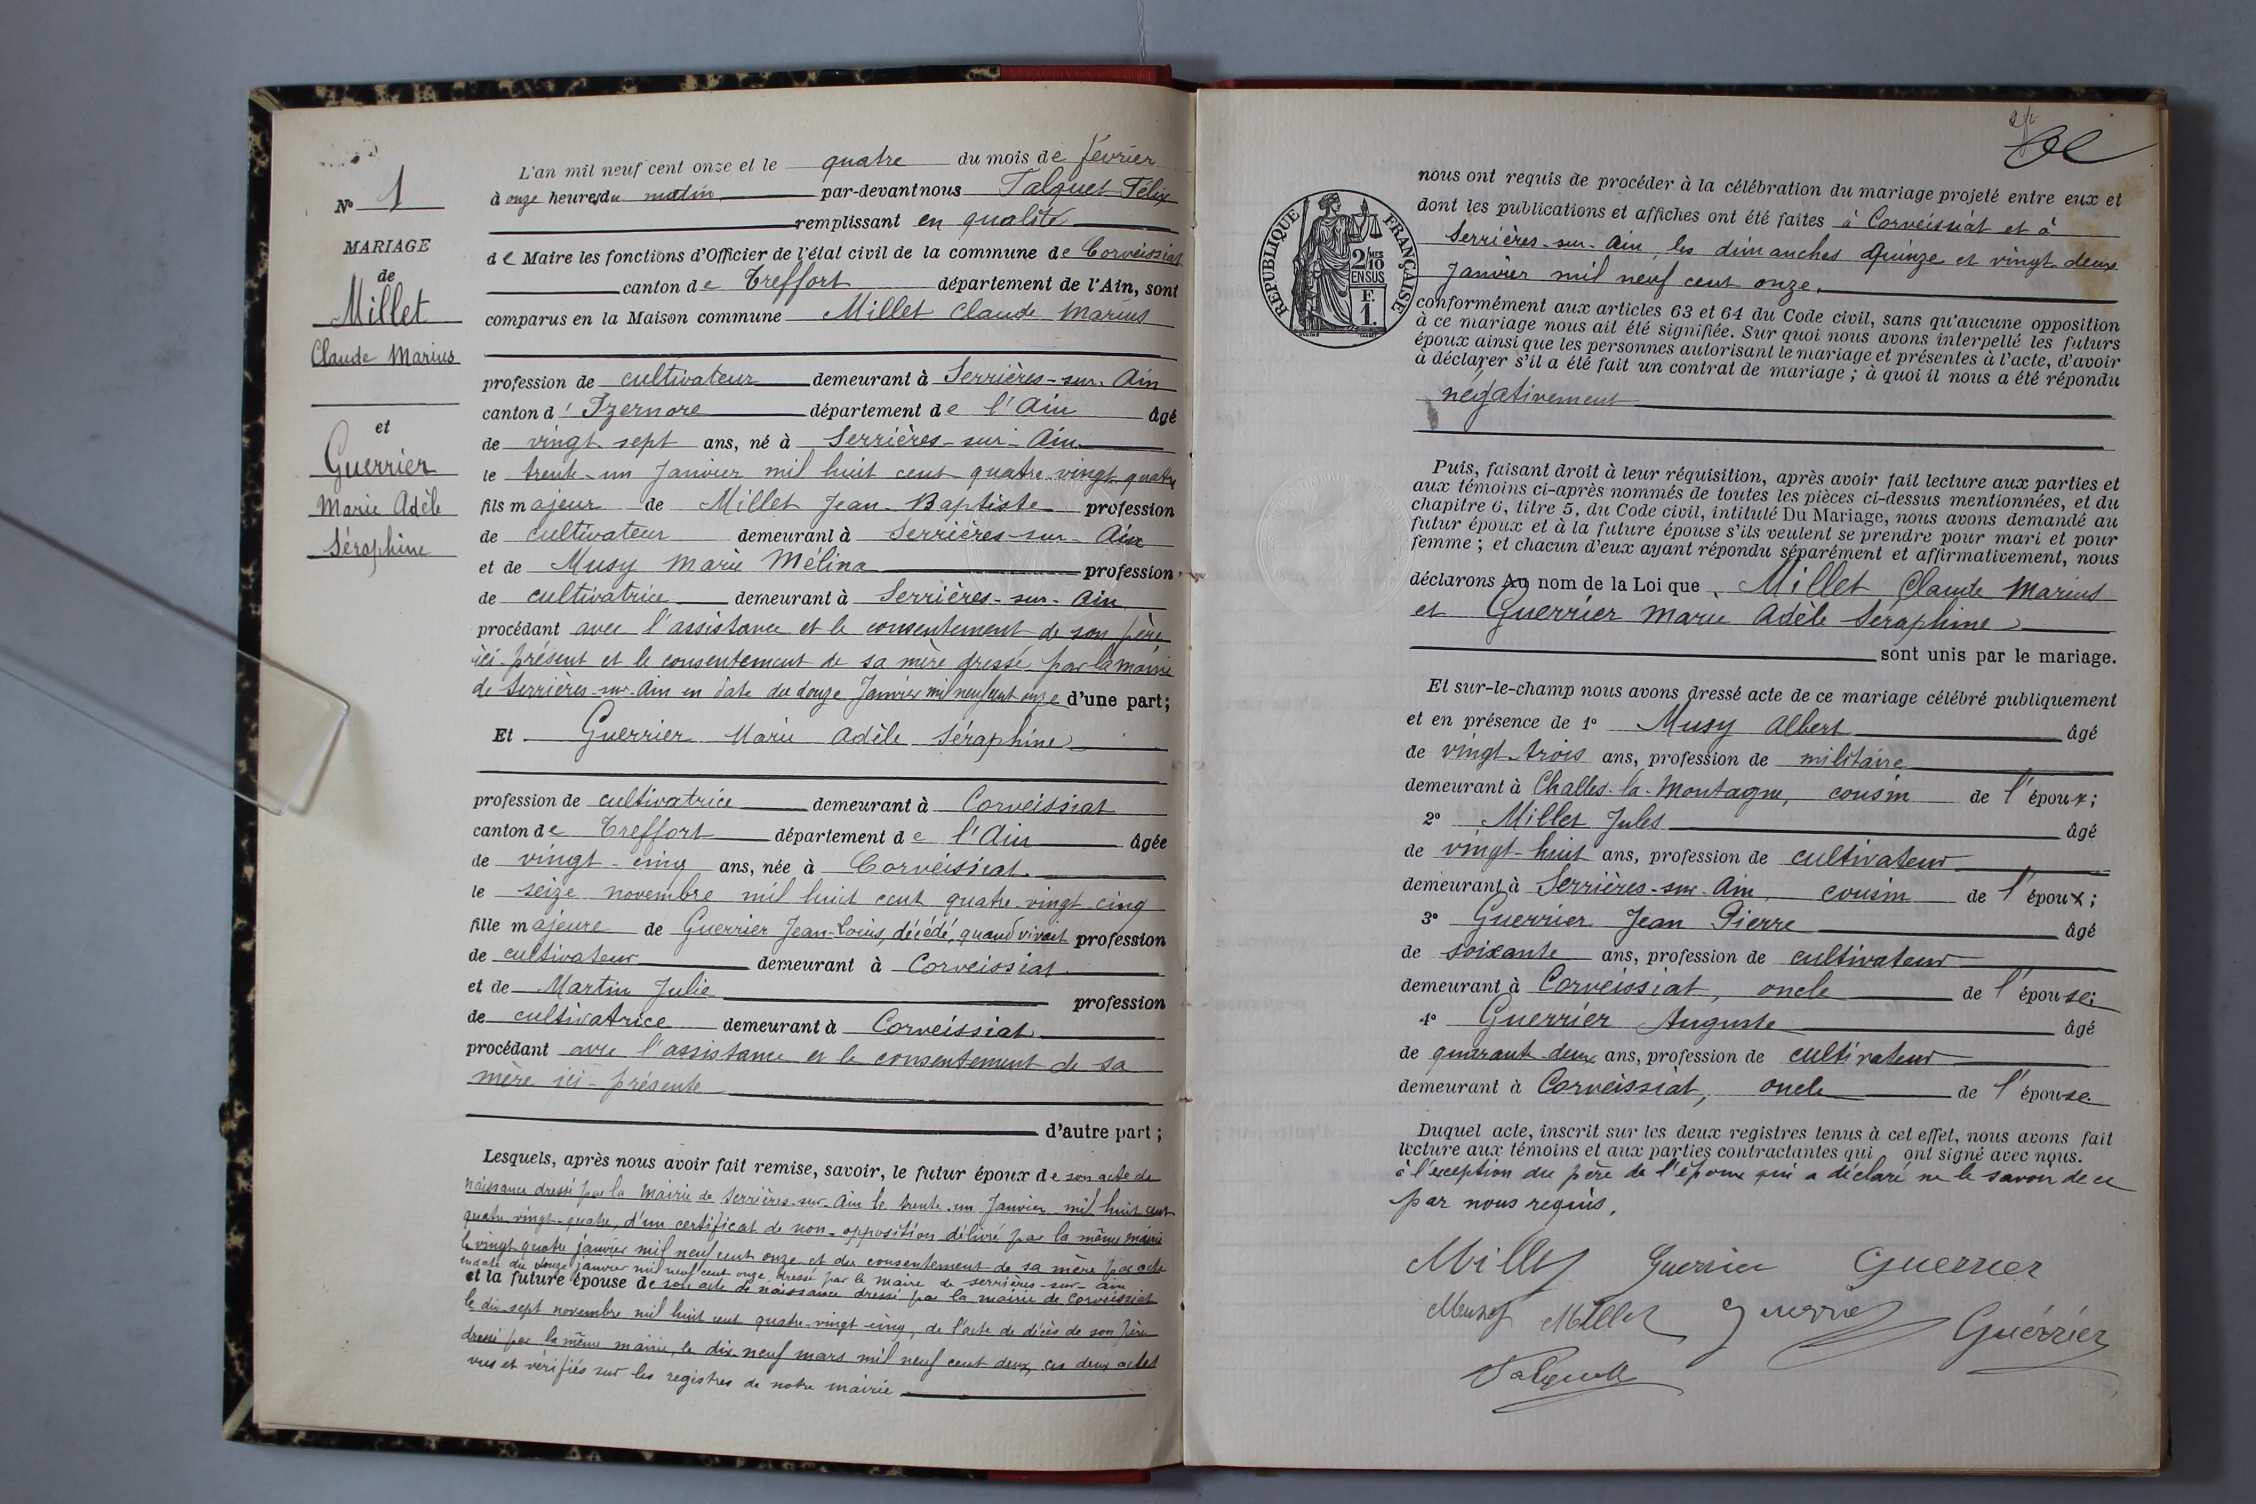 N° 1
MARIAGE
de
Millet
Claude Marius
et
Guerrier
Marie Adèle
Séraphine
L'an mil neuf cent onze et le quatre du mois de février
à onze heures du matin par-devant nous Talquet Félix
remplissant en qualité
de Maire les fonctions d'Officier de l'état civil de la commune de Corveissiat
canton de Treffort département de l'Ain, sont
comparus en la Maison commune Millet Claude Marius
profession de cultivateur demeurant à Serrières-sur-Ain
canton d'Izernore département de l'Ain âgé
de vingt-sept ans, né à Serrières-sur-Ain
le trente-un Janvier mil huit cent quatre-vingt quatre
fils majeur de Millet Jean-Baptiste profession
de cultivateur demeurant à Serrières-sur-Ain
et de Musy Marie Mélina profession
de cultivatrice demeurant à Serrières-sur-Ain
procédant avec l'assistance et le consentement de son père
ici-présent et le consentement de sa mère dressé par la mairie
de Serrières-sur-Ain en date du douze Janvier mil neuf cent onze d'une part;
Et Guerrier Marie Adèle Séraphine
profession de cultivatrice demeurant à Corveissiat
canton de Treffort département de l'Ain âgée
de vingt-cinq ans, née à Corveissiat
le seize novembre mil huit cent quatre-vingt cinq
fille majeure de Guerrier Jean-Louis, décédé, quand vivait profession
de cultivateur demeurant à Corveissiat
et de Martin Julie profession
de cultivatrice demeurant à Corveissiat
procédant avec l'assistance et le consentement de sa
mère ici-présente
d'autre part ;
Lesquels, après nous avoir fait remise, savoir, le futur époux de son acte de
naissance dressé par la Mairie de Serrières-sur-Ain le trente-un Janvier mil huit cent
quatre-vingt-quatre, d'un certificat de non-opposition délivré par la même mairie
le vingt quatre janvier mil neuf cent onze et du consentement de sa mère par acte
en date du douze janvier mil neuf cent onze dressé par le maire de Serrières-sur-Ain
et la future épouse de son acte de naissance dressé par la mairie de Corveissiat
le dix-sept novembre mil huit cent quatre-vingt-cinq, de l'acte de décès de son père
dressé par la même mairie, le dix-neuf mars mil neuf cent deux, ces deux actes
vus et vérifiés sur les registres de notre mairie
RÉPUBLIQUE FRANÇAISE
2 MES
10
EN SUS
F.
1.
nous ont requis de procéder à la célébration du mariage projeté entre eux et
dont les publications et affiches ont été faites à Corveissiat et à
Serrières-sur-Ain, les dimanches quinze et vingt-deux
Janvier mil neuf cent onze,
conformément aux articles 63 et 64 du Code civil, sans qu'aucune opposition
à ce mariage nous ait été signifiée. Sur quoi nous avons interpellé les futurs
époux ainsi que les personnes autorisant le mariage et présentes à l'acte, d'avoir
à déclarer s'il a été fait un contrat de mariage ; à quoi il nous a été répondu
négativement
Puis, faisant droit à leur réquisition, après avoir fait lecture aux parties et
aux témoins ci-après nommés de toutes les pièces ci-dessus mentionnées, et du
chapitre 6, titre 5, du Code civil, intitulé Du Mariage, nous avons demandé au
futur époux et à la future épouse s'ils veulent se prendre pour mari et pour
femme ; et chacun d'eux ayant répondu séparément et affirmativement, nous
déclarons Au nom de la Loi que Millet Claude Marius
et Guerrier Marie Adèle Séraphine
sont unis par le mariage.
Et sur-le-champ nous avons dressé acte de ce mariage célébré publiquement
et en présence de 1° Musy Albert âgé
de vingt-trois ans, profession de militaire
demeurant à Challes-la-Montagne, cousin de l'époux;
2° Millet Jules âgé
de vingt-huit ans, profession de cultivateur
demeurant à Serrières-sur-Ain, cousin de l'époux;
3° Guerrier Jean Pierre âgé
de soixante ans, profession de cultivateur
demeurant à Corveissiat, oncle de l'épouse;
4° Guerrier Auguste âgé
de quarante-deux ans, profession de cultivateur
demeurant à Corveissiat, oncle de l'épouse.
Duquel acte, inscrit sur les deux registres tenus à cet effet, nous avons fait
lecture aux témoins et aux parties contractantes qui ont signé avec nous.
à l'exception du père de l'époux qui a déclaré ne le savoir de ce
par nous requis.
Millet Guerrier Guerrier
Musy Millet Guerrier Guérrier
Talquet